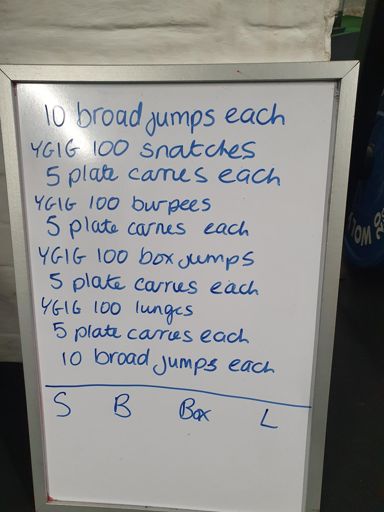 10 broad jumps each
YGIG 100 snatches
5 plate carries each
YGIG 100 burpees
5 plate carries each
YGIG 100 box jumps
5 plate carries each
YGIG 100 lunges
5 plate carries each
10 broad jumps each
S B Box L